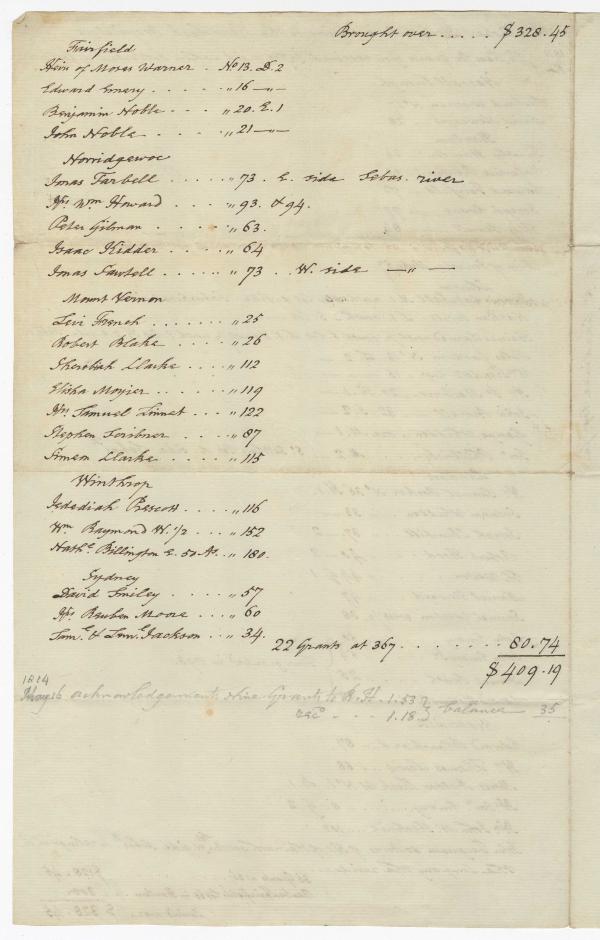 Brought over . . . . . $328.45
Fairfield
Heirs of Moses Warner . No 13. D. 2
Edward Emery . . . . . „ 16 —„—
Benjamin Noble . . . „ 20. E. 1
John Noble . . . . „ 21 —„—
Norridgewoc
Jonas Farbell . . . . . „ 73 . E. side Sebas. river
Wm Howard . . . . „ 93. & 94.
Peter Gilman . . . . . „ 63.
Isaac Kidder . . . . . „ 64
Jonas Sawtell . . . . „ 73 . . W. side —„—
Mount Vernon
Levi French . . . . . . „ 25
Robert Blake . . . . „ 26
Sherebiah Clarke . . . . „ 112
Elisha . . . . . „ 119
Samuel Linnet . . . „ 122
Stephen Scribner . . . . „ 87
Simeon Clarke . . . . . „ 115
Winthrop
Jedediah Prescott . . . . „ 116
Wm Raymond W. 1/2 . . . „ 152
Nathl. Billington E. 50 As. . „ 180.
Sydney
David Smiley . . . . „ 57
Reuben Moore . . . „ 60
& Jackson . . . „ 34.
22 Grants at 367 . . . . . . . . 80.74
$409.19
1814
May 6 acknowledgements nine Grants to R. H. 1.53
. . . 1.18 } balance 35